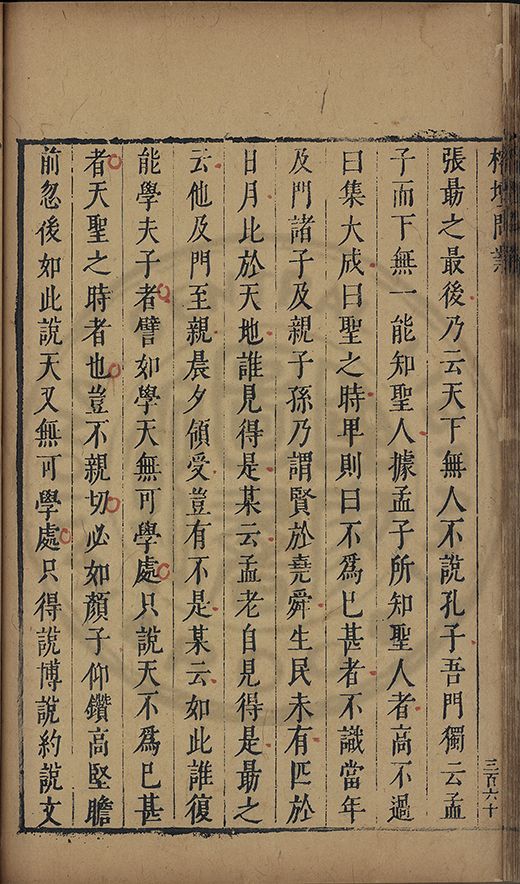 榕壇問業
三百六十
張勗之最後乃云天下無人不說孔子吾門獨云孟
子而下無一能知聖人據孟子所知聖人者高不過
曰集大成曰聖之時卑則曰不爲已甚者不識當年
及門諸子及親子孫乃謂賢於堯舜生民未有匹於
日月比於天地誰見得是某云孟老自見得是勗之
云他及門至親晨夕領受豈有不是某云如此誰復
能學夫子者譬如學天無可學處只說天不爲已甚
者天聖之時者也豈不親切必如顏子仰鑽高堅瞻
前忽後如此說天又無可學處只得說博說約說文